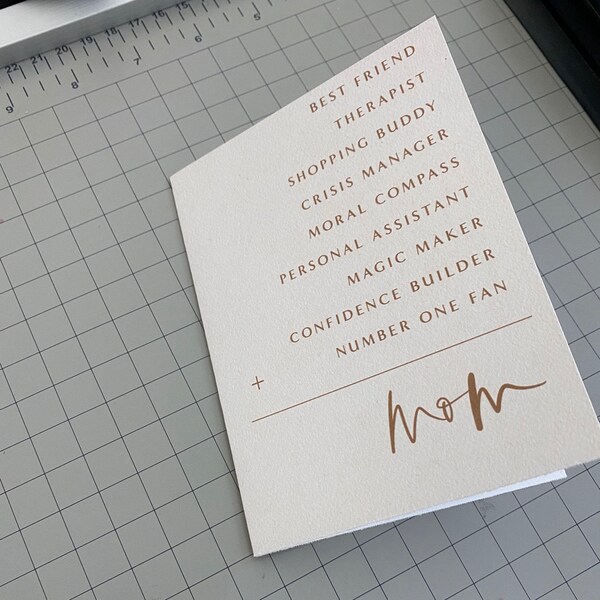 22 21 20 19 18 17 16 15
9 8 7 6 5
BEST FRIEND
THERAPIST
SHOPPING BUDDY
CRISIS MANAGER
MORAL COMPASS
PERSONAL ASSISTANT
MAGIC MAKER
CONFIDENCE BUILDER
NUMBER ONE FAN
+
Mom